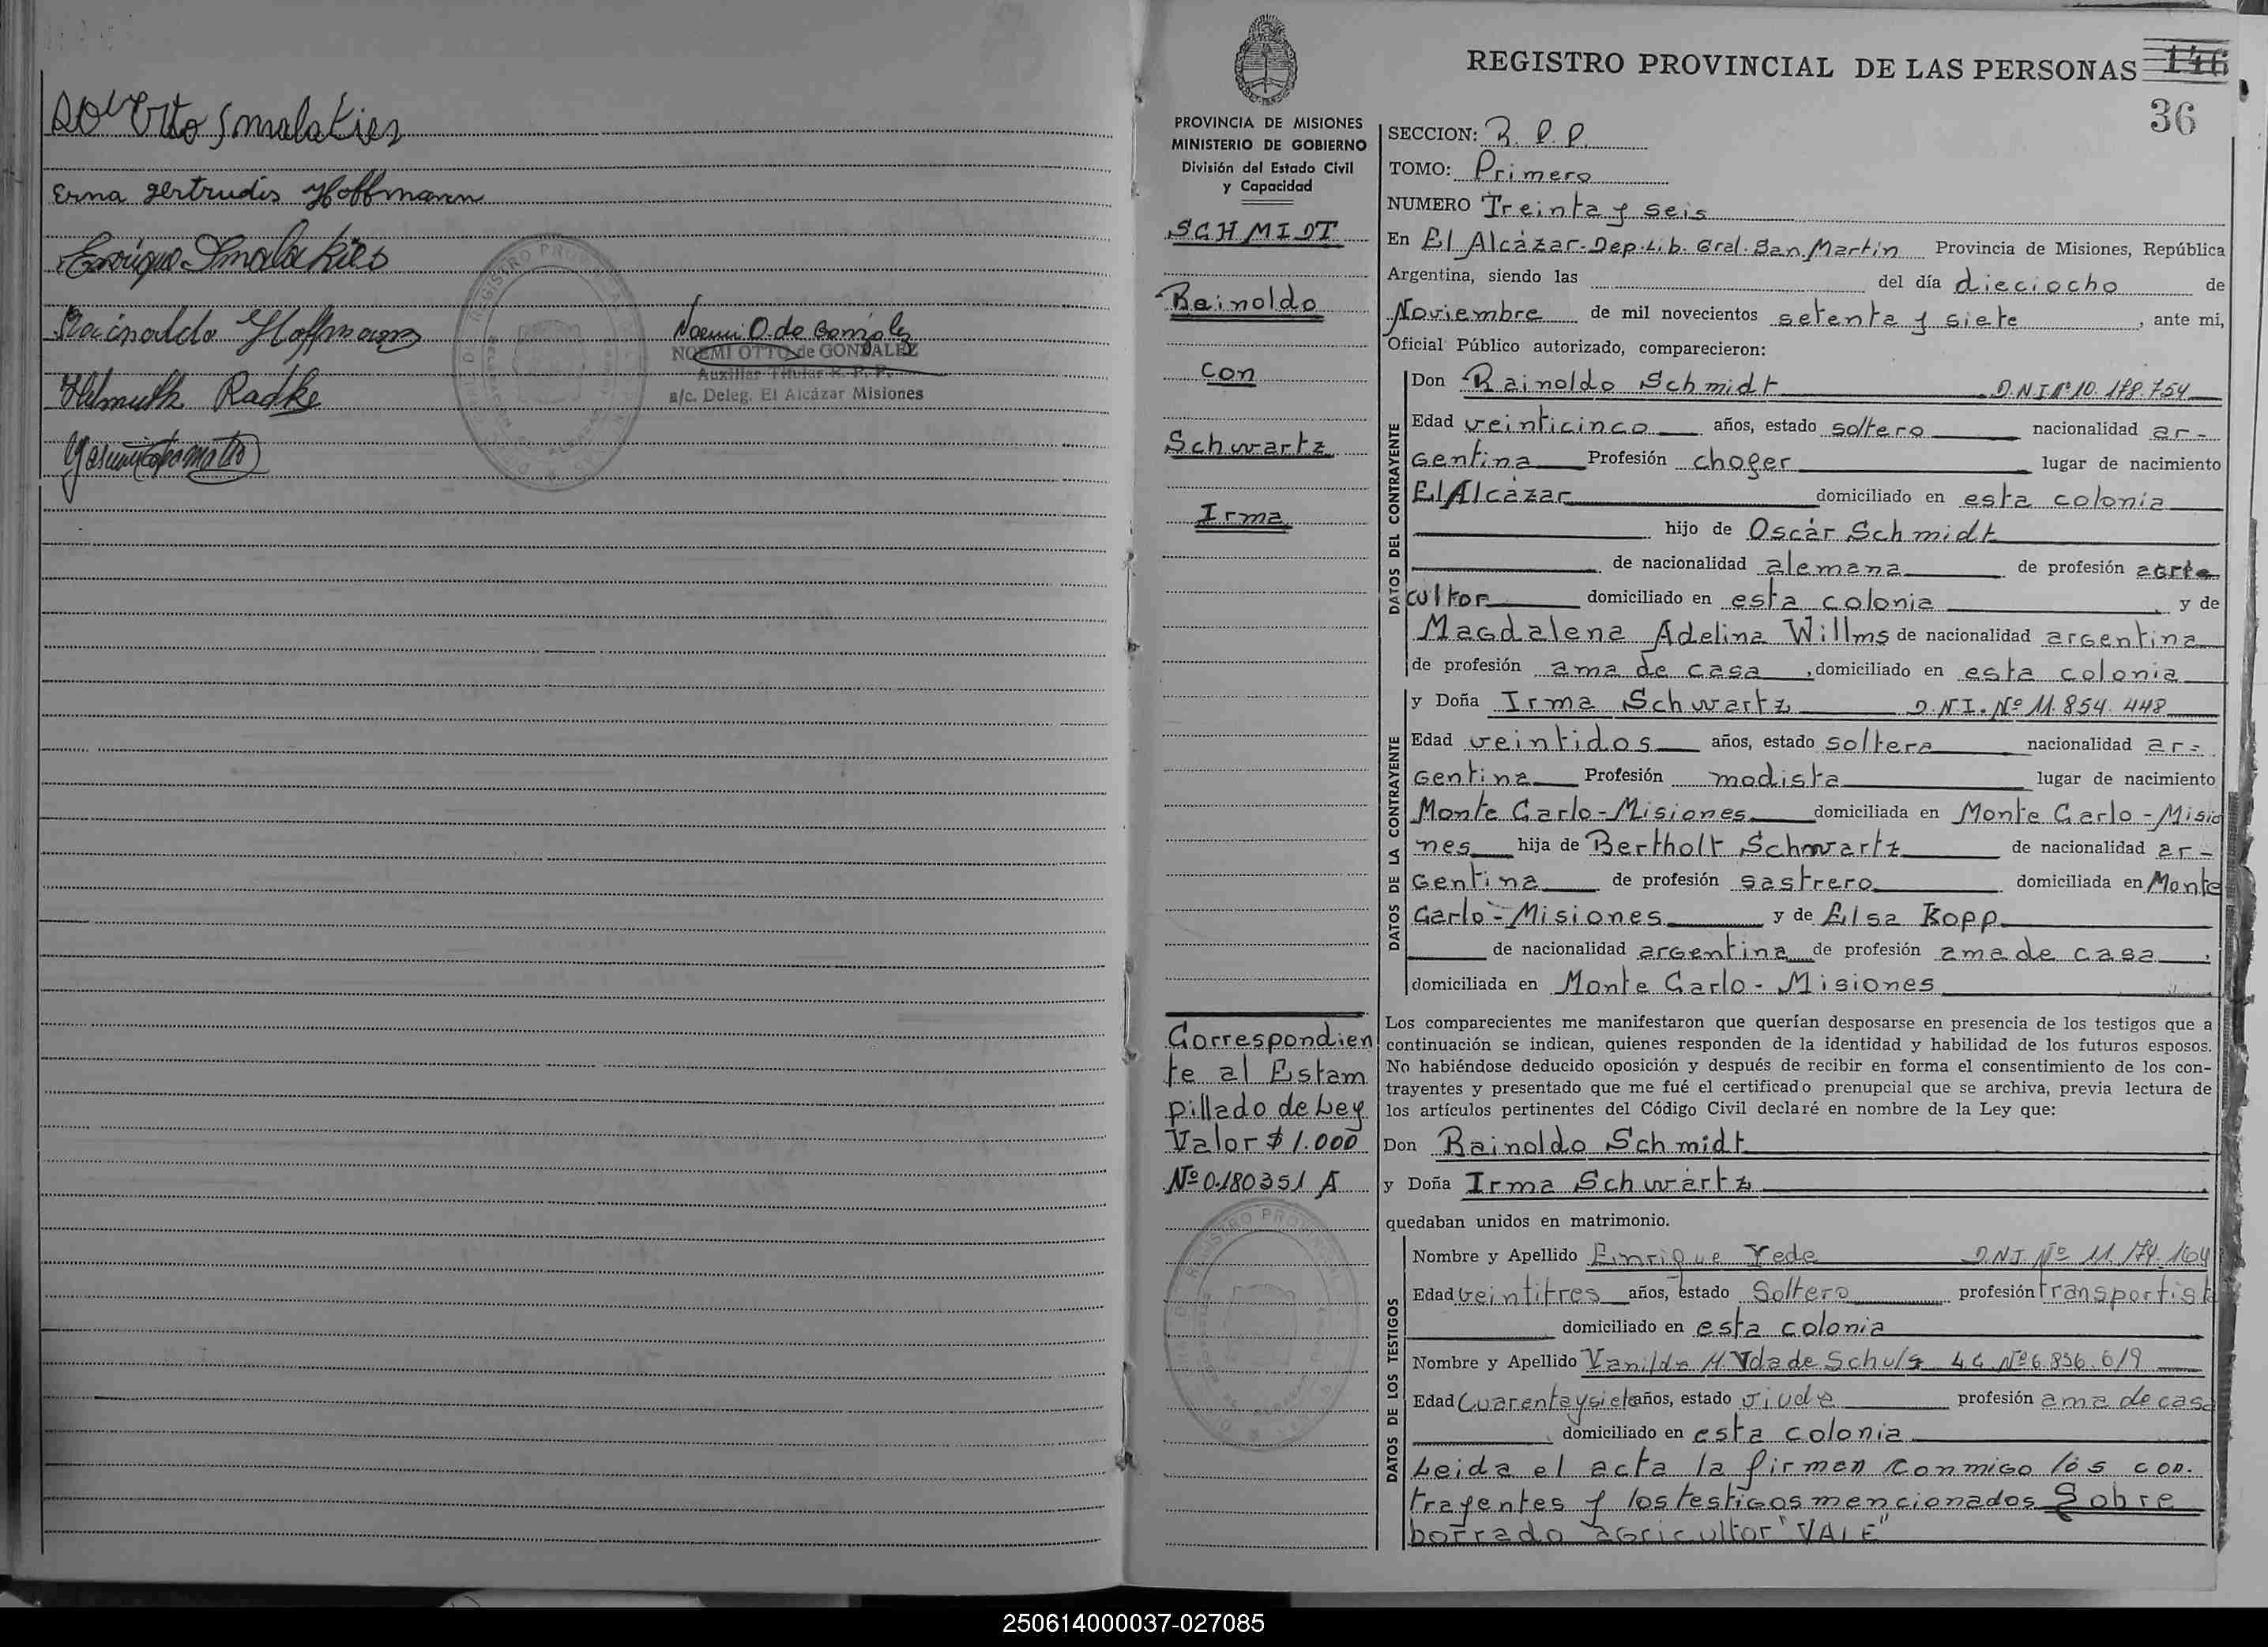 Roberto Smalakies
Erna Gertrudis Hoffmann
Enrique Smalakies
Rainoldo Hoffmann
Helmuth Radke
Noemi O. de Gonzalez
NOEMI OTTO de GONZALEZ
Auxiliar Titular R. P. P.
a/c. Deleg. El Alcázar Misiones
REGISTRO PROVINCIAL DE LAS PERSONAS 146
36
PROVINCIA DE MISIONES
MINISTERIO DE GOBIERNO
División del Estado Civil
y Capacidad
SCHMIDT
Rainoldo
con
Schwartz
Irma
Correspondien
te al Estam
pillado de Ley
Valor $ 1.000
Nº 0180351 A
SECCION: R. P. P.
TOMO: Primero
NUMERO Treinta y seis
En El Alcázar-Dep. Lib. Gral. San Martín Provincia de Misiones, República
Argentina, siendo las del día dieciocho de
Noviembre de mil novecientos setenta y siete, ante mi,
Oficial Público autorizado, comparecieron:
DATOS DEL CONTRAYENTE
Don Rainoldo Schmidt D.N.I. Nº 10.178.754
Edad veinticinco años, estado soltero nacionalidad ar-
gentina Profesión chofer lugar de nacimiento
El Alcázar domiciliado en esta colonia
hijo de Oscár Schmidt
de nacionalidad alemana de profesión agri
cultor domiciliado en esta colonia y de
Magdalena Adelina Willms de nacionalidad argentina
de profesión ama de casa, domiciliado en esta colonia
DATOS DE LA CONTRAYENTE
y Doña Irma Schwartz D.N.I. Nº 11.854.448
Edad veintidos años, estado soltera nacionalidad ar-
gentina Profesión modista lugar de nacimiento
Monte Carlo-Misiones domiciliada en Monte Carlo-Misio
nes hija de Bertholt Schwartz de nacionalidad ar-
gentina de profesión sastrero domiciliada en Monte
Carlo-Misiones y de Elsa Kopp
de nacionalidad argentina de profesión ama de casa,
domiciliada en Monte Carlo-Misiones
Los comparecientes me manifestaron que querían desposarse en presencia de los testigos que a
continuación se indican, quienes responden de la identidad y habilidad de los futuros esposos.
No habiéndose deducido oposición y después de recibir en forma el consentimiento de los con-
trayentes y presentado que me fué el certificado prenupcial que se archiva, previa lectura de
los artículos pertinentes del Código Civil declaré en nombre de la Ley que:
Don Rainoldo Schmidt
y Doña Irma Schwartz
quedaban unidos en matrimonio.
DATOS DE LOS TESTIGOS
Nombre y Apellido Enrique Yede D.N.I. Nº 11.174.164
Edad veintitres años, estado Soltero profesión transportista
domiciliado en esta colonia
Nombre y Apellido Vanilda H. Vda de Schulz L C Nº 6.836.619
Edad Cuarenta y siete años, estado viuda profesión ama de casa
domiciliado en esta colonia
Leida el acta la firman conmigo los con.
trayentes y los testigos mencionados Sobre
borrado "agricultor" "VALE"
250614000037-027085